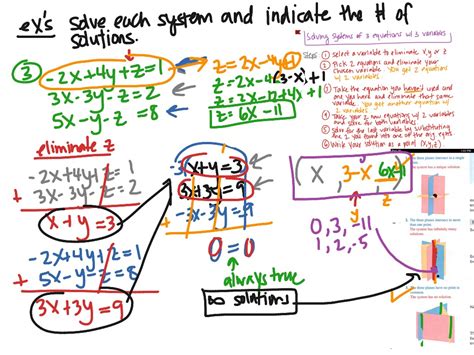 ex's solve each system and indicate the # of
solutions.
③ -2x+4y+z=1
3x-3y-z=2
5x-y-z=8
z=2x-4y+1
z=2x-4(3-x)+1
z=2x-12+4x+1
z=6x-11
Solving systems of 3 equations w/ 3 variables
① select a variable to eliminate x,y or z
② Pick 2 equations and eliminate your
chosen variable. You get 2 equation
w/ 2 variables
③ Take the equation you haven't used and
one you used and eliminate that same
variable. You get another equation w/
2 variables.
④ Take your 2 new equations w/ 2 variables
and solve for both variables
⑤ Solve for the last variable by substituting
the 2 you found into one of the orig eq'ns
⑥ Write your solution as a point (x,y,z)
eliminate z
-2x+4y+z=1
3x-3y-z=2
x+y=3
-2x+4y+z=1
5x-y-z=8
3x+3y=9
-3 x+y=3
3x+3y=9
-3x-3y=-9
0=0
always true
∞ solutions
(x, 3-x, 6x-11)
y z
0,3,-11
1,2,-5